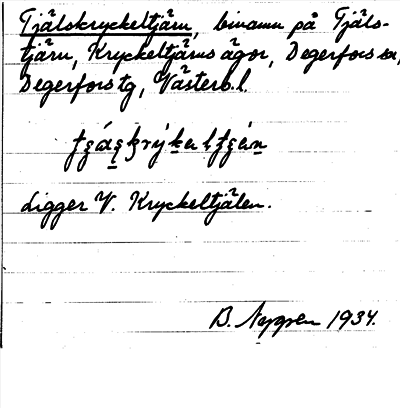 Tjälskryckeltjärn, binamn på Tjäls-
tjärn, Kryckeltjärns ägor, Degerfors sn,
Degerfors tg, Västerb. l.
Ligger V. Kryckeltjälen.
B. Nygren 1934.